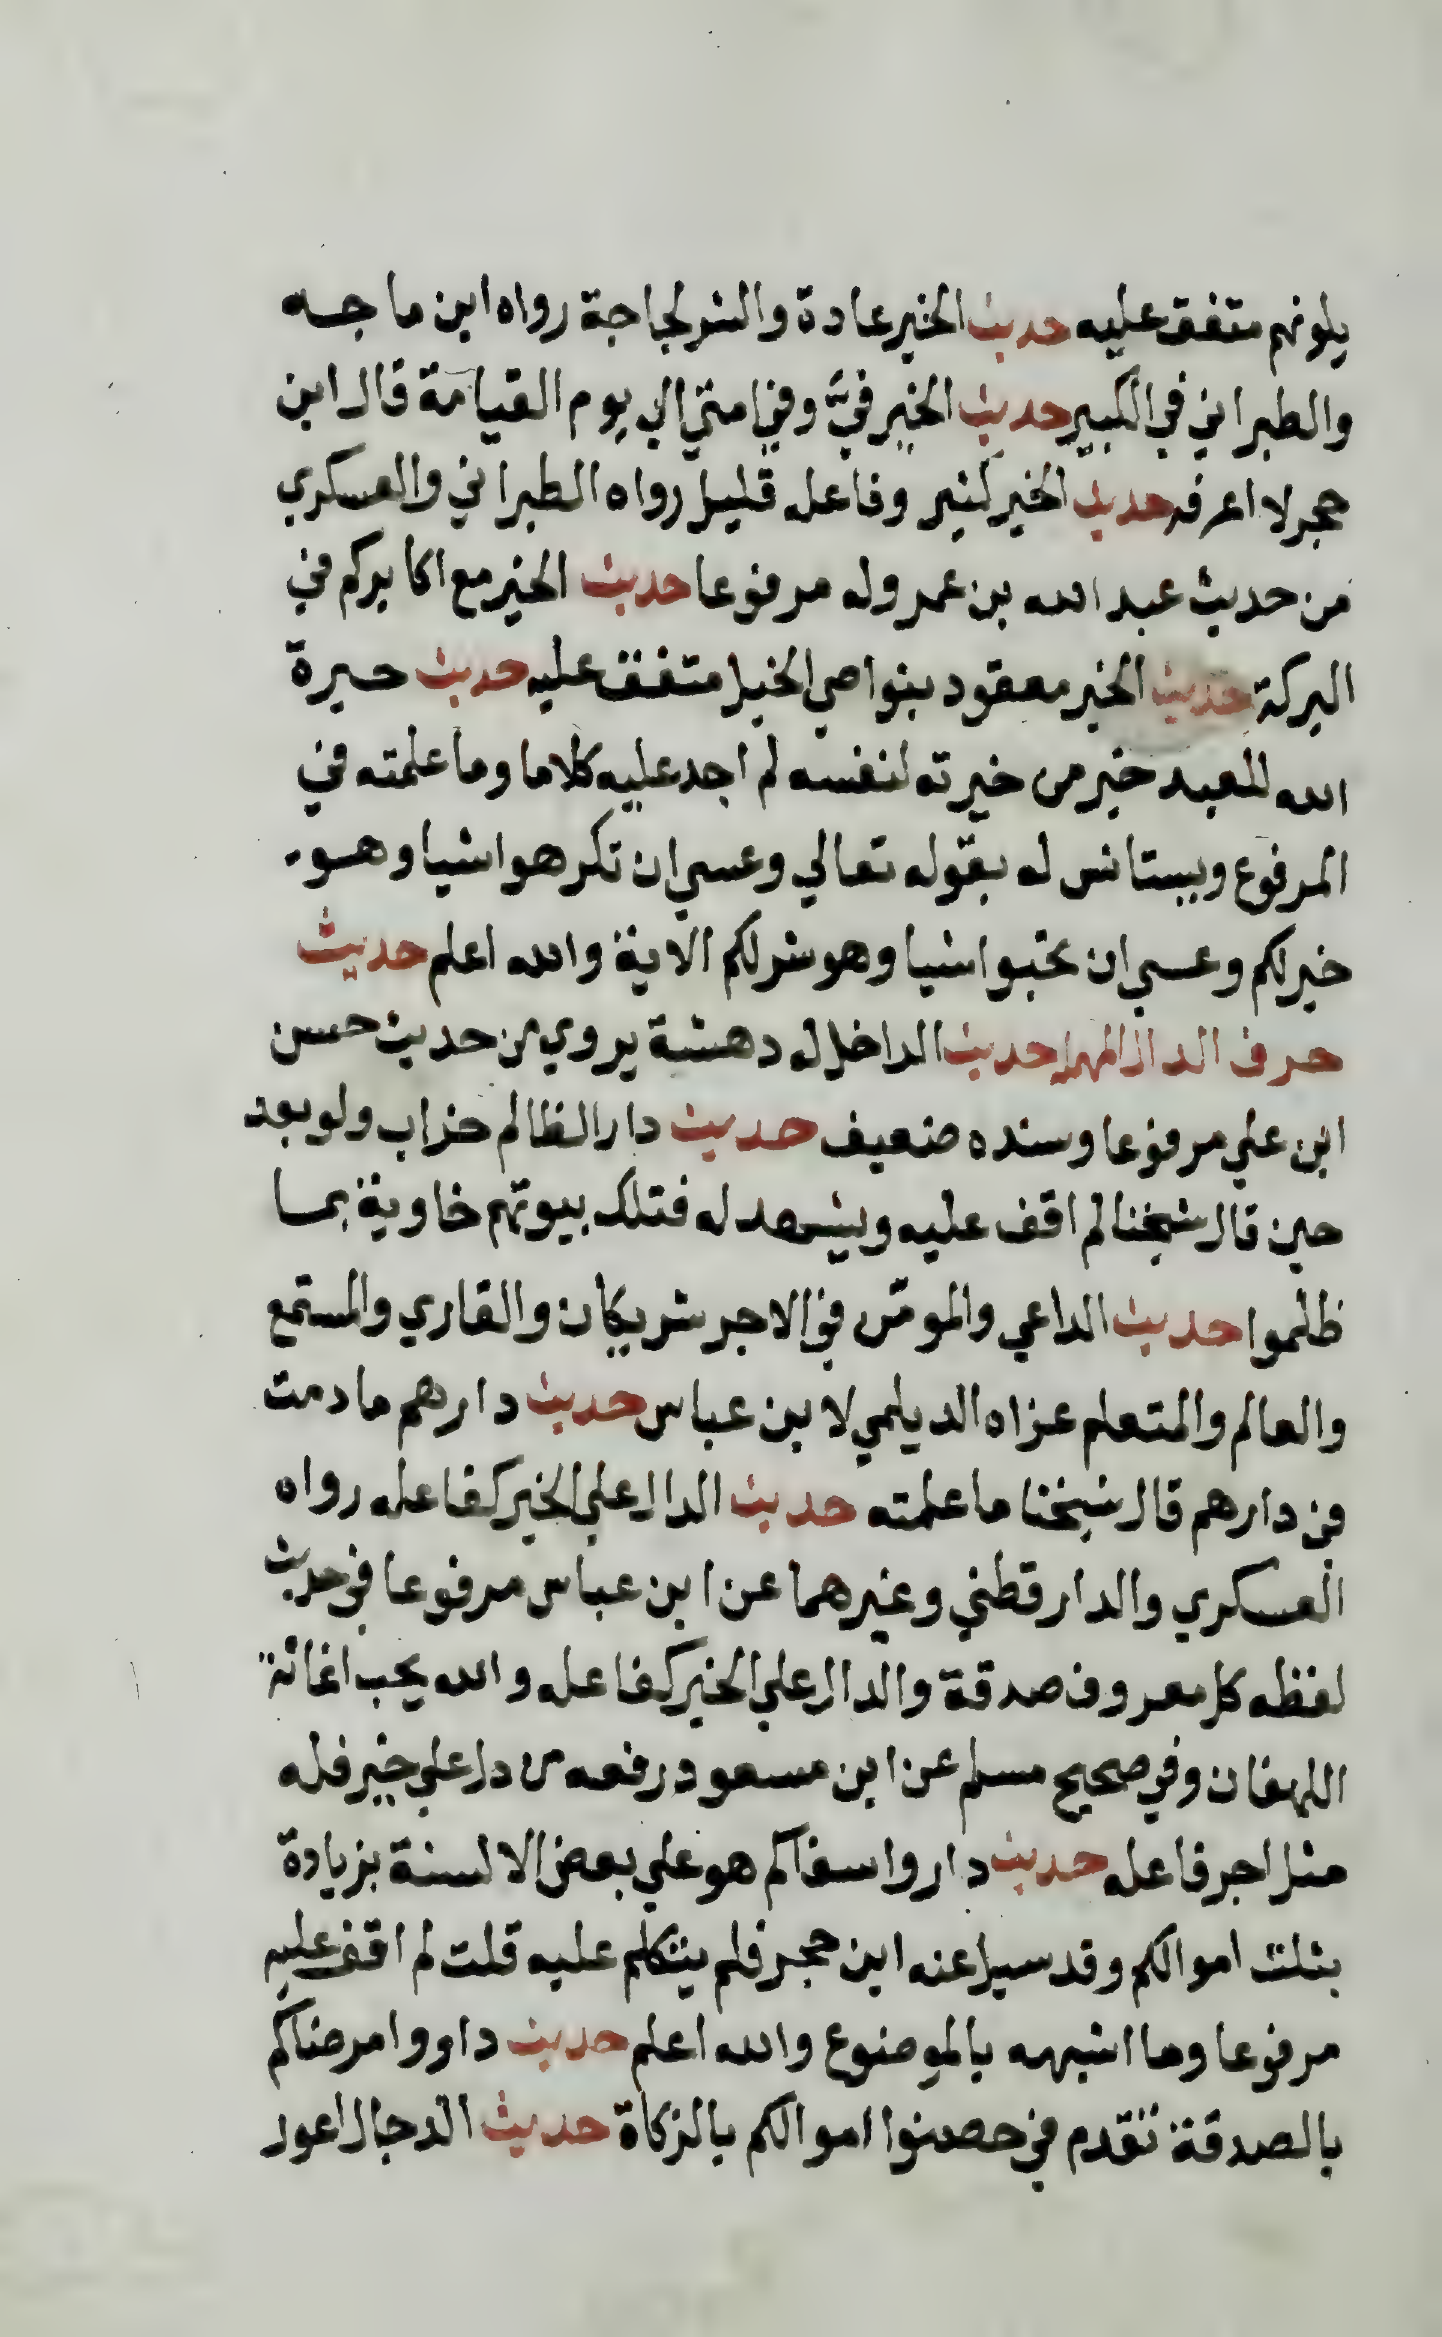 يلونهم متفق عليه حديث الخير عادة والشر لجاجة رواه ابن ماجه
والطبراني في الكبير حديث الخير فيّ وفي امتي الي يوم القيامة قال ابن
حجر لا اعرفه حديث الخير كثير وفاعله قليل رواه الطبراني والعسكري
من حديث عبد الله بن عمر وله مرفوعا حديث الخير مع اكابركم في
البركة حديث الخير معقود بنواصي الخيل متفق عليه حديث خيرة
الله للعبد خير من خيرته لنفسه لم اجد عليه كلاما وما علمته في
المرفوع ويستانس له بقوله تعالي وعسي ان تكرهوا شيا وهو
خير لكم وعسي ان تحبوا شيا وهو شر لكم الاية والله اعلم حديث
حرف الدال المهملة حديث الداخل له دهشة يروي من حديث حسن
ابن علي مرفوعا وسنده ضعيف حديث دار الظالم خراب ولو بعد
حين قال شيخنا لم اقف عليه ويشهد له فتلك بيوتهم خاوية بما
ظلموا حديث الداعي والمومّن في الاجر شريكان والقاري والمستمع
والعالم والمتعلم عزاه الديلمي لابن عباس حديث دارهم ما دمت
في دارهم قال شيخنا ما علمته حديث الدال علي الخير كفاعله رواه
العسكري والدارقطني وغيرهما عن ابن عباس مرفوعا في حديث
لفظه كل معروف صدقة والدال علي الخير كفاعله والله يحب اغاثة
اللهفان وفي صحيح مسلم عن ابن مسعود رفعه من دل علي خير فله
مثل اجر فاعله حديث داروا سفاكم هو علي بعض الالسنة بزيادة
بثلث اموالكم وقد سيل عنه ابن حجر فلم يتكلم عليه قلت لم اقف عليه
مرفوعا وما اشبهه بالموضوع والله اعلم حديث داووا امرضاكم
بالصدقة تقدم في حصنوا اموالكم بالزكاة حديث الدجال اعور